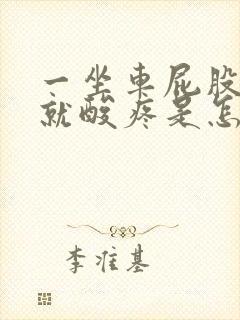 一坐车屁股
就酸疼是怎
李准基